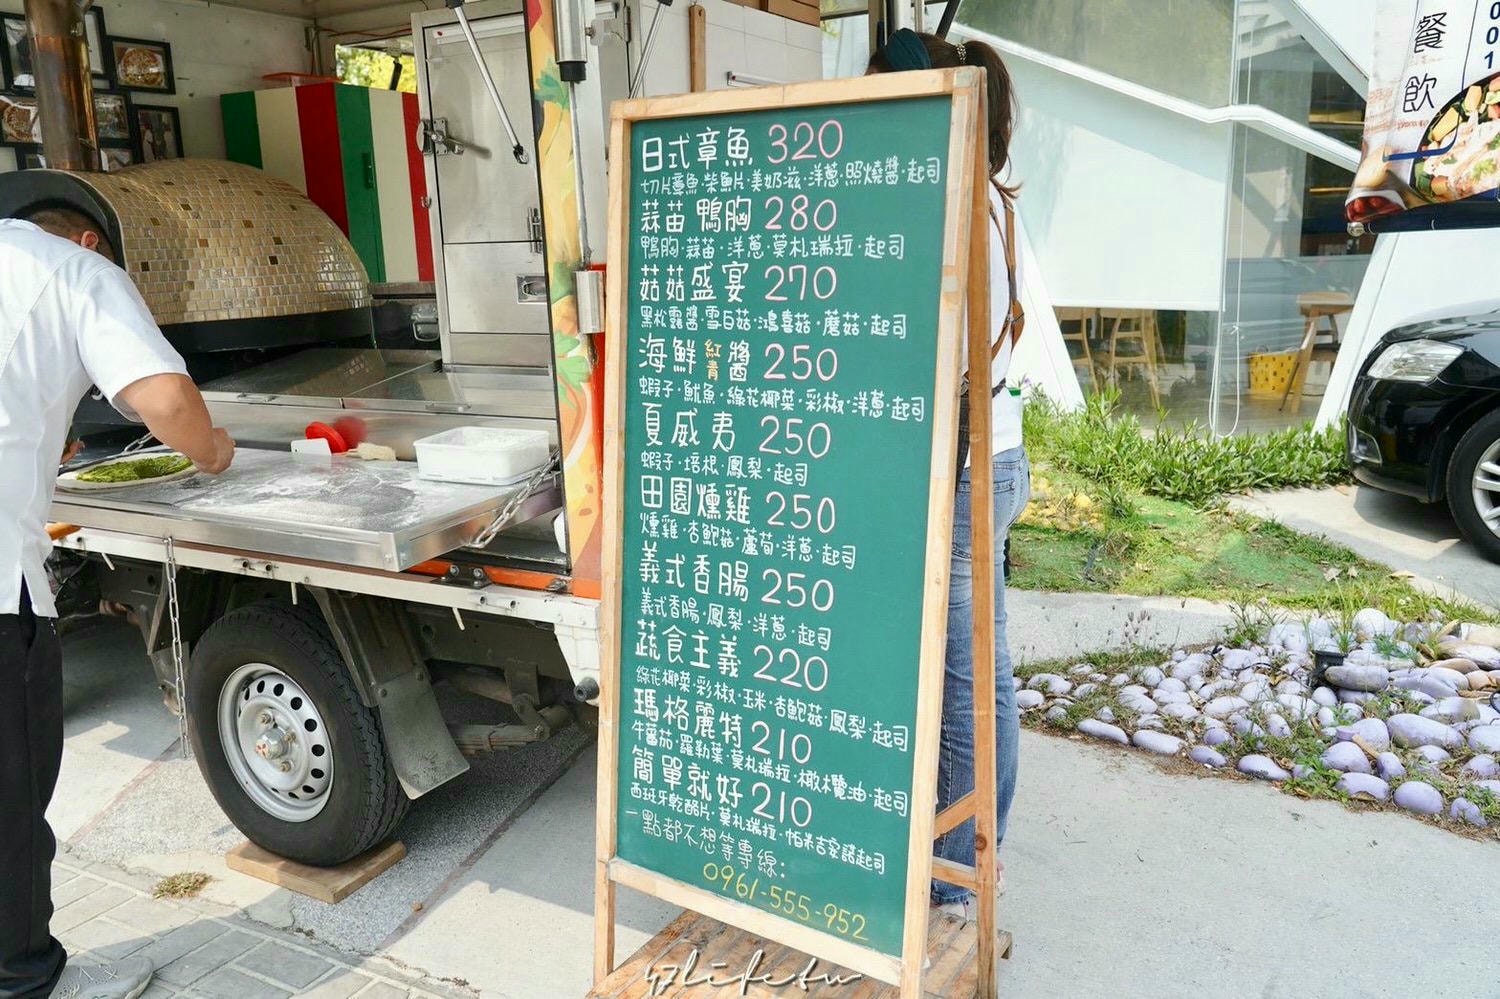 日式章魚 320
切片章魚·柴魚片·美奶滋·洋蔥·照燒醬·起司
蒜苗鴨胸 280
鴨胸·蒜苗·洋蔥·莫札瑞拉·起司
菇菇盛宴 270
黑松露醬·雪白菇·鴻喜菇·蘑菇·起司
海鮮紅青醬 250
蝦子·魷魚·綠花椰菜·彩椒·洋蔥·起司
夏威夷 250
蝦子·培根·鳳梨·起司
田園燻雞 250
燻雞·杏鮑菇·蘆筍·洋蔥·起司
義式香腸 250
義式香腸·鳳梨·洋蔥·起司
蔬食主義 220
綠花椰菜·彩椒·玉米·杏鮑菇·鳳梨·起司
瑪格麗特 210
牛蕃茄·羅勒葉·莫札瑞拉·橄欖油·起司
簡單就好 210
西班牙乾酪片·莫札瑞拉·帕米吉安諾起司
一點都不想等專線:
0961-555-952
餐飲
001
47life.tw